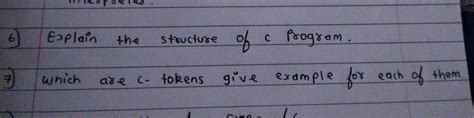 6) Explain the structure of c Program.
7) which are c- tokens give example for each of them